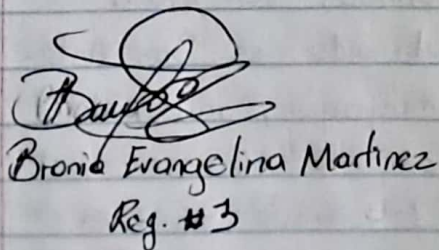 Bronia Evangelina Martinez
Reg. #3